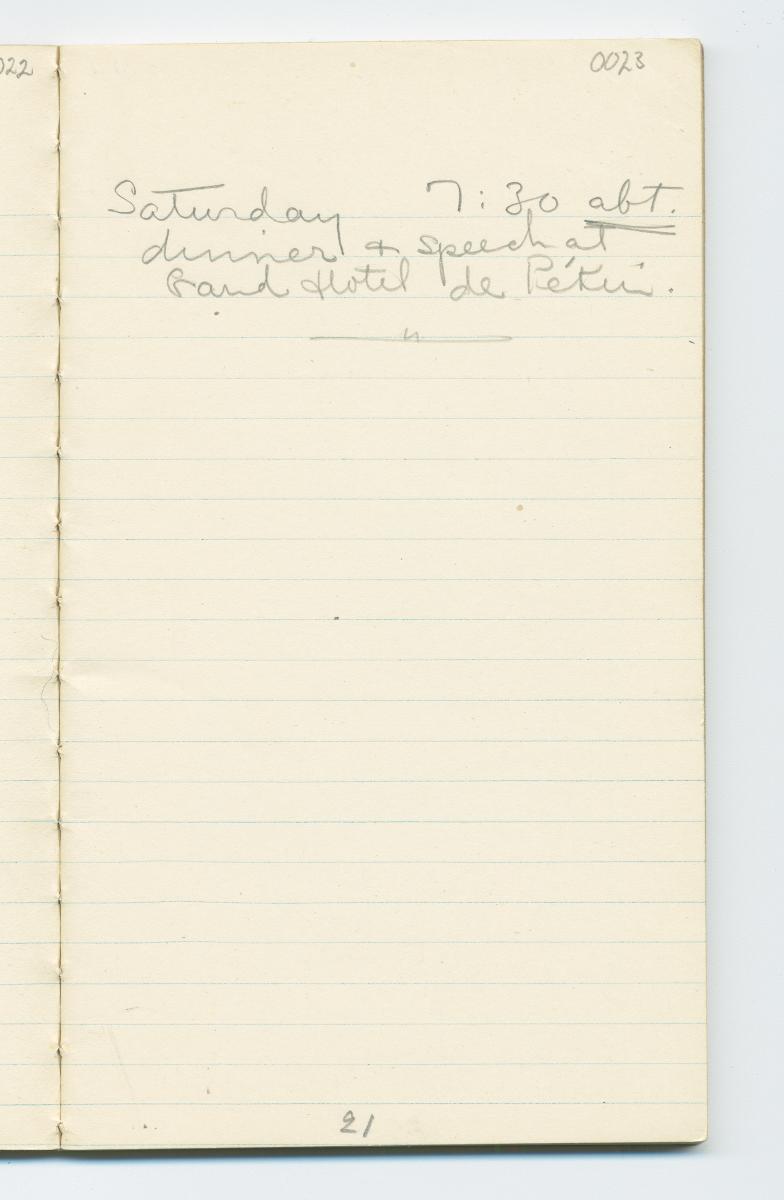 022
0023
Saturday 7:30 abt.
dinner & speech at
Grand Hotel de Pékin.
21